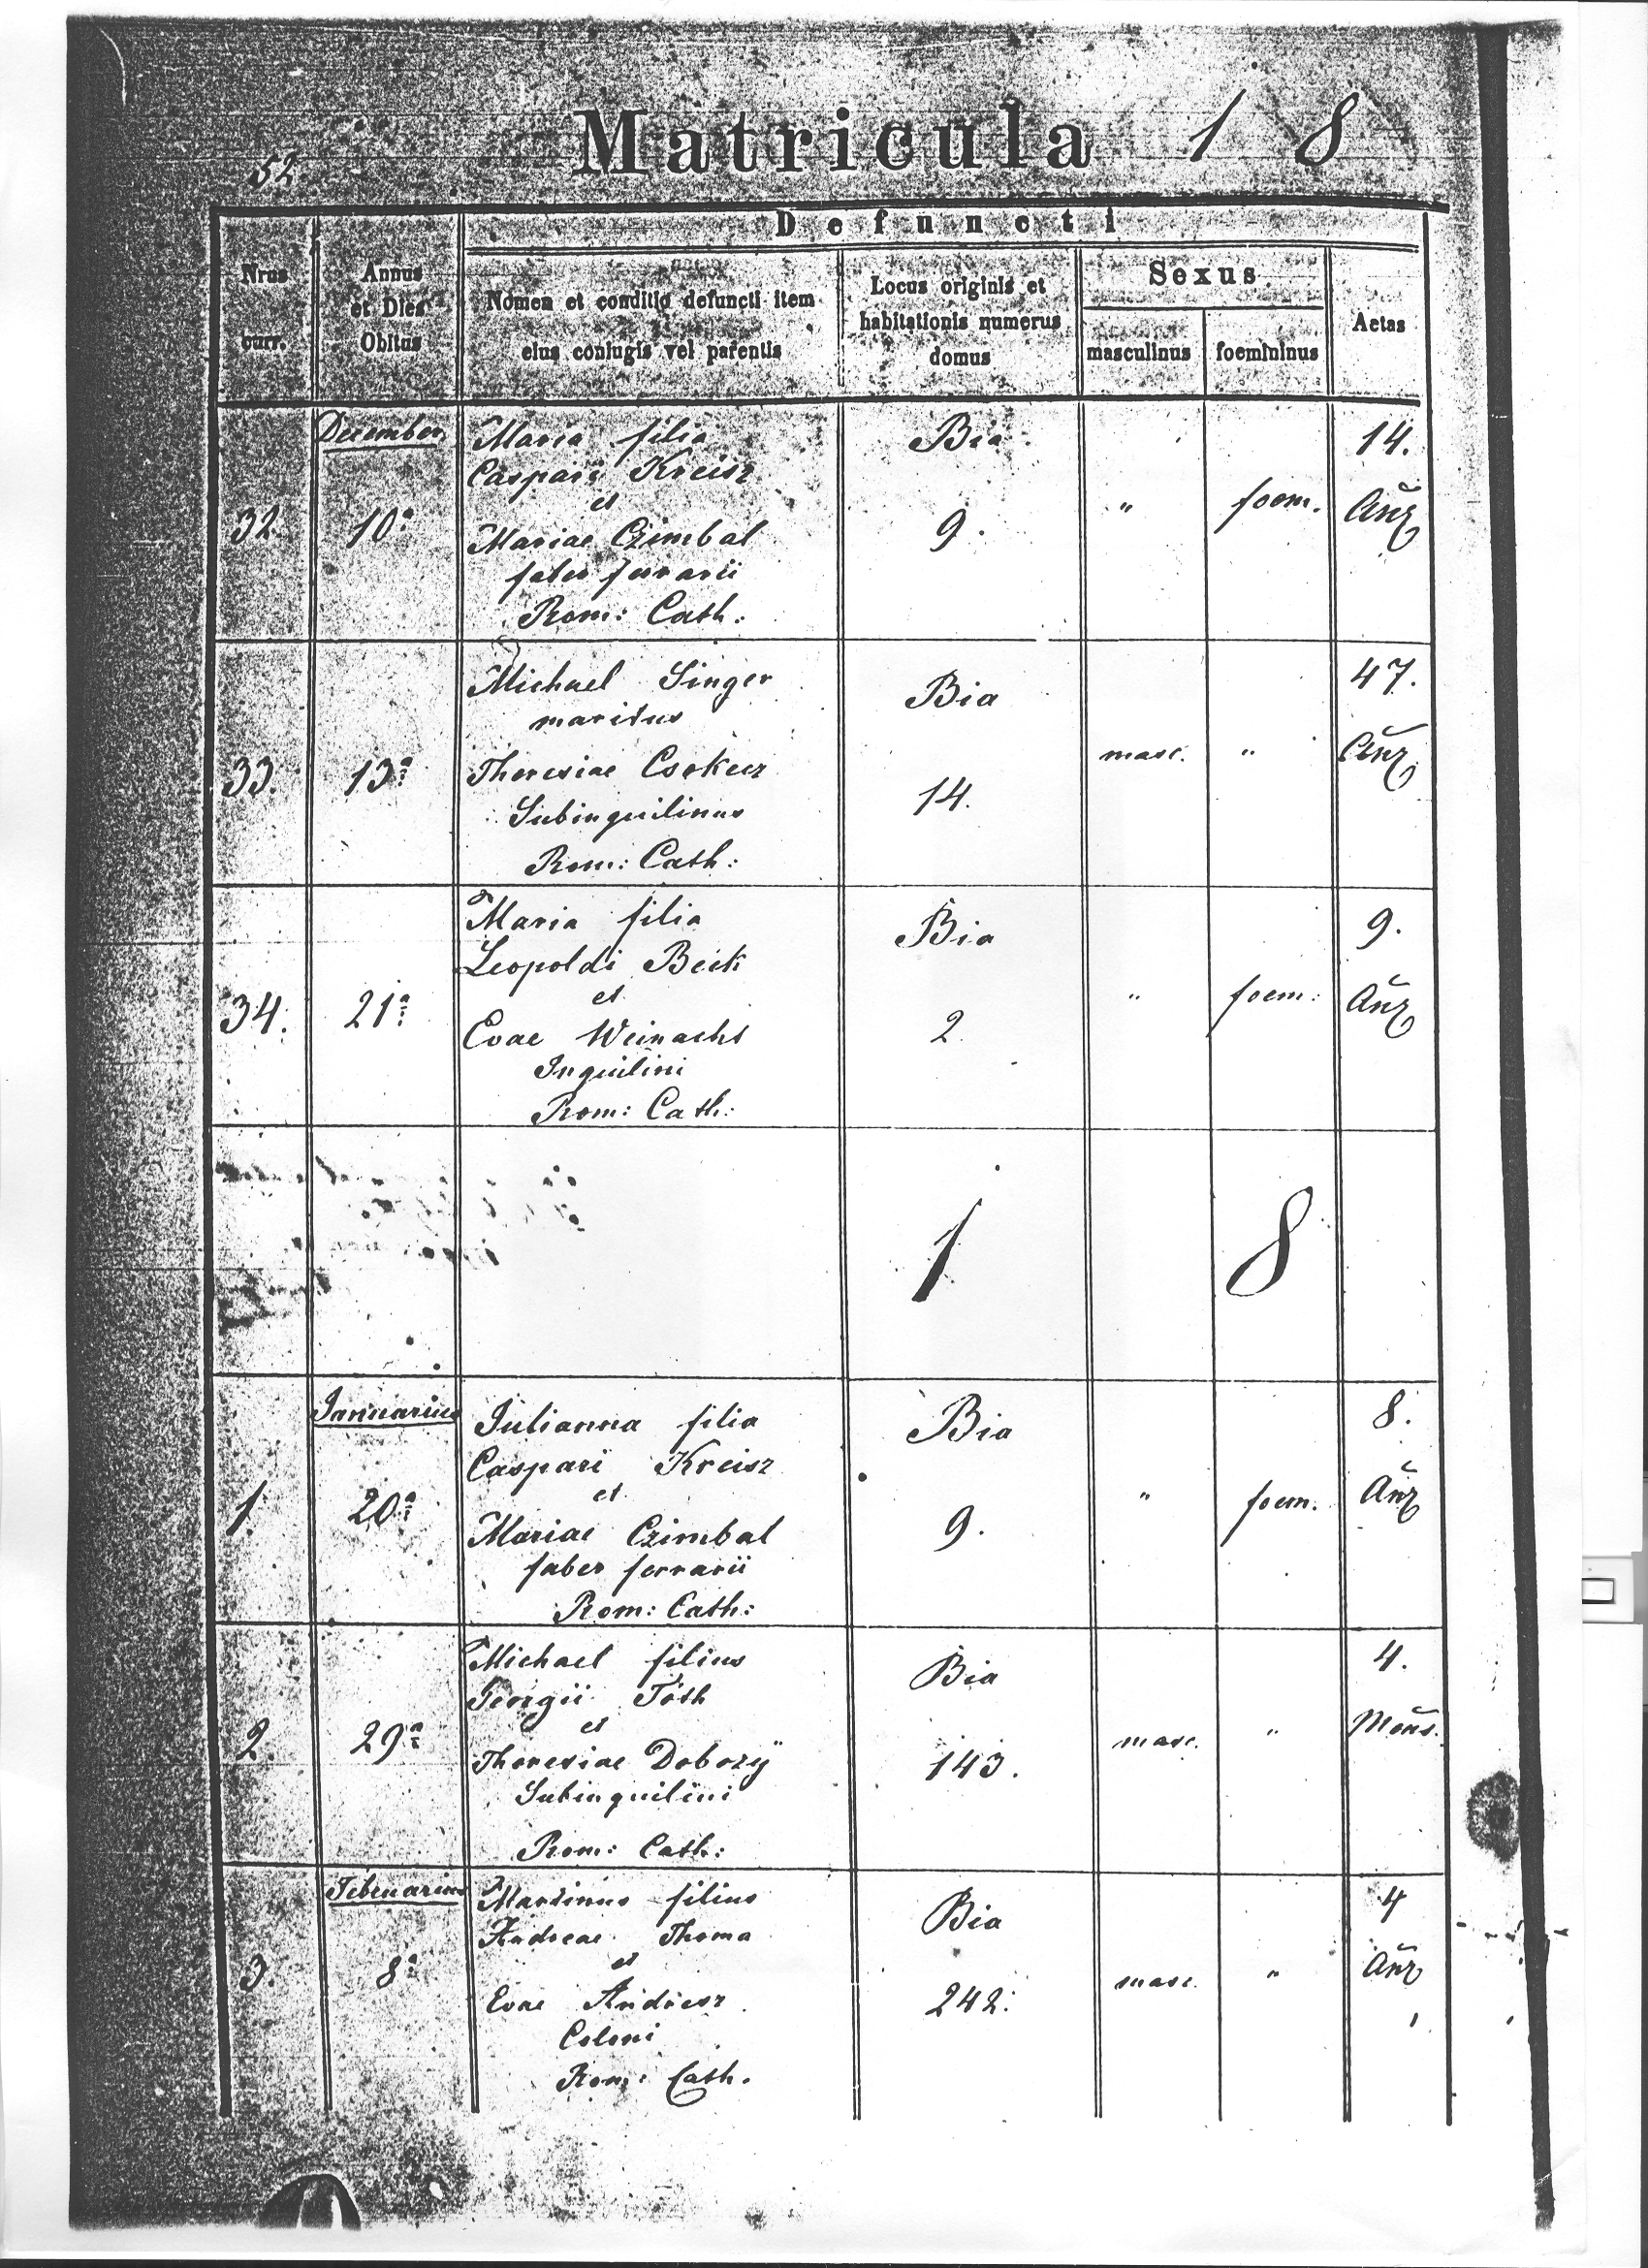 52
Matricula 1 8
Defuncti
Nrus curr.
Annus et Dies Obitus
Nomen et conditio defuncti item
eius coniugis vel parentis
Locus originis et
habitationis numerus
domus
Sexus
masculinus
foemininus
Aetas
December
32.
10ª
Maria filia
Caspari Kreisz
et
Mariae Czimbal
faber ferrarii
Rom: Cath:
Bia
9.
"
foem.
14.
Añ
33.
13ª
Michael Singer
maritus
Theresiae Csokecz
Subinquilinus
Rom: Cath:
Bia
14.
masc.
"
47.
Añ
34.
21ª
Maria filia
Leopoldi Beck
et
Evae Weinacht
Inquilini
Rom: Cath:
Bia
2
"
foem:
9.
Añ
1 8
Januarius
1.
20ª
Julianna filia
Caspari Kreisz
et
Mariae Czimbal
faber ferrarii
Rom: Cath:
Bia
9.
"
foem.
8.
Añ
2.
29ª
Michael filius
Georgii Tóth
et
Theresiae Dobozÿ
Subinquilini
Rom: Cath:
Bia
143.
masc.
"
4.
Meñs.
Februarius
3.
8ª
Martinus filius
Andreae Thoma
et
Evae Andresz
Coloni
Rom: Cath.
Bia
242.
masc.
"
4
Añ